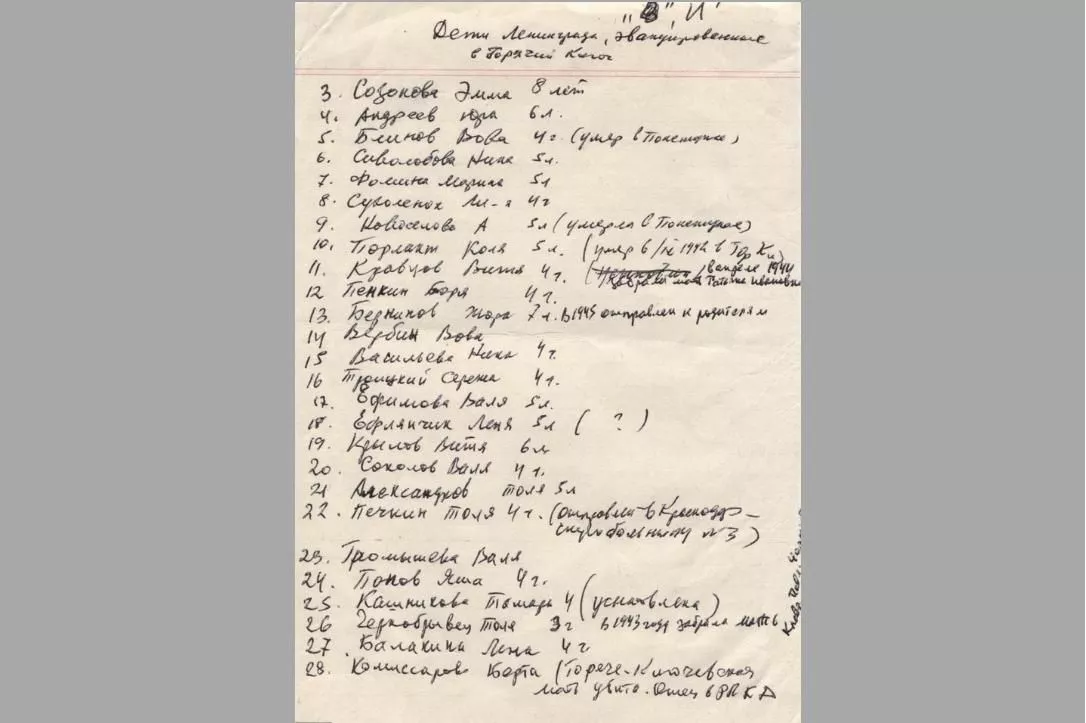 "В", И"
Дети Ленинграда, эвакуированные
в Горячий Ключ
3. Созонова Эмма 8 лет
4. Андреев Юра 6 л.
5. Блинов Вова 4 г. (умер в
6. Сиволобова Нина 5 л.
7. Фомина Марина 5 л
8. Сухоленок 4 г
9. Новоселова А 5 л (умерла в
10. Коля 5 л. (умер 1942 в Гор Кл)
11. Кравцов Витя 4 г. 1944
забрала мать Татьяна Ивановна
12 Пенкин Боря 4 г.
13. Жора 7 л. В 1945 отправлен к родителям
14 Вербин Вова
15 Васильева Нина 4 г.
16 Троицкий Сережа 4 г.
17. Ефимова Валя 5 л.
18. Леня 5 л ( ? )
19. Крылов Витя 6 л
20. Соколов Валя 4 г.
21 Александров Толя 5 л
22. Печкин Толя 4 г. (отправлен в Краснодар-
скую больницу № 3)
23. Громышева Валя
24. Попов Яша 4 г.
25. Кашникова Тамара 4 (усыновлена)
26 Чернобривец Толя 3 г в 1943 году забрала мать
27. Балакина Лена 4 г
28. Комиссарова Берта (Горяче-Ключевская
мать убита. Отец в РККА